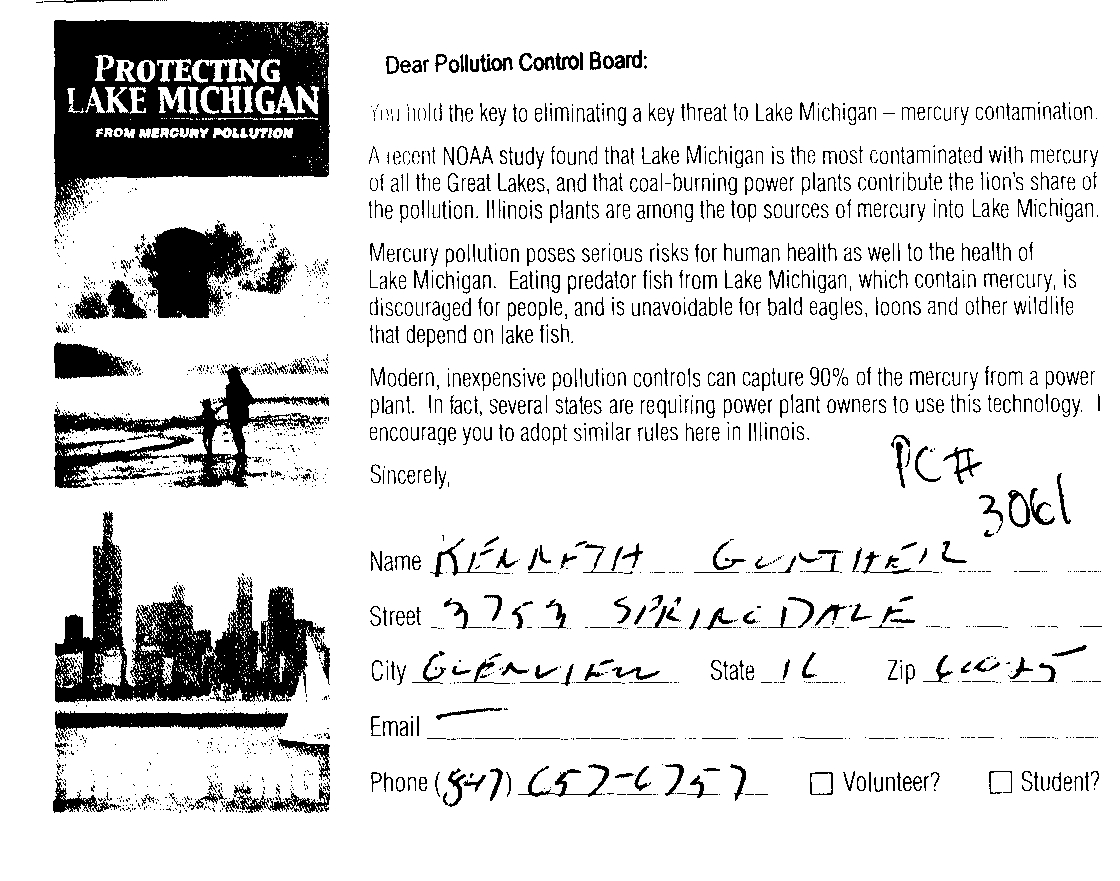 PROTECTING
LAKE MICHIGAN
FROM MERCURY POLLUTION
Dear Pollution Control Board:
You hold the key to eliminating a key threat to Lake Michigan – mercury contamination.
A recent NOAA study found that Lake Michigan is the most contaminated with mercury
of all the Great Lakes, and that coal-burning power plants contribute the lion's share of
the pollution. Illinois plants are among the top sources of mercury into Lake Michigan.
Mercury pollution poses serious risks for human health as well to the health of
Lake Michigan. Eating predator fish from Lake Michigan, which contain mercury, is
discouraged for people, and is unavoidable for bald eagles, loons and other wildlife
that depend on lake fish.
Modern, inexpensive pollution controls can capture 90% of the mercury from a power
plant. In fact, several states are requiring power plant owners to use this technology. I
encourage you to adopt similar rules here in Illinois.
Sincerely,
PC#
3061
Name KENNETH GUNTHER
Street 3753 SPRINGDALE
City GLENVIEW State IL Zip 60025
Email —
Phone (847) 657-6757 Volunteer? Student?